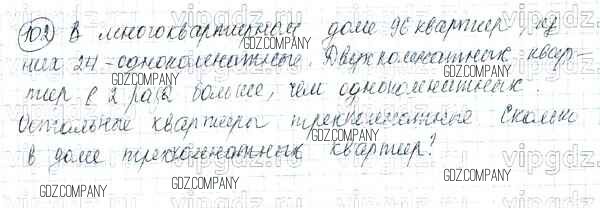 102 В многоквартирном доме 96 квартир, из
них 24 - однокомнатные. Двухкомнатных квар-
тир в 2 раза больше, чем однокомнатных.
Остальные квартиры трехкомнатные. Сколько
в доме трехкомнатных квартир?
GDZ.COMPANY
GDZ.COMPANY
GDZ.COMPANY
GDZ.COMPANY
GDZ.COMPANY
GDZ.COMPANY
GDZ.COMPANY
vipgdz
vipgdz
vipgdz